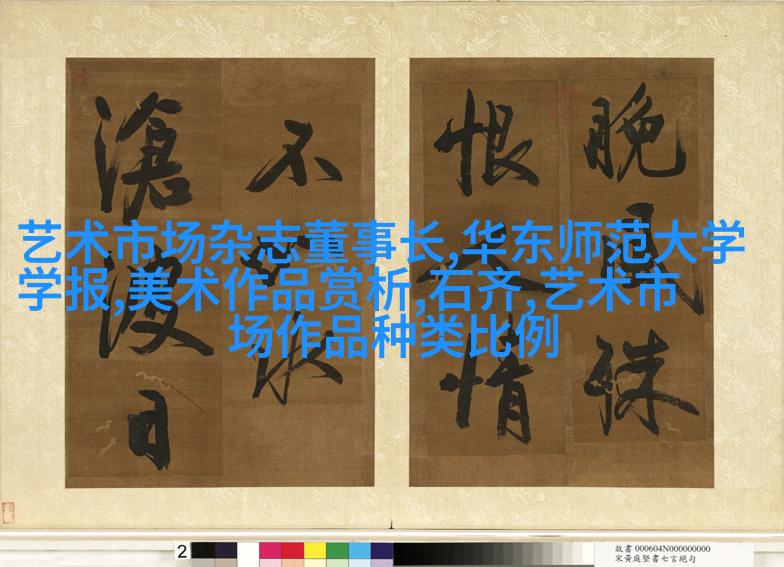 晚風殊
恨人情
不水
滄日
艺术市场杂志董事长,华东师范大学
学报,美术作品赏析,石齐,艺术市
场作品种类比例
2
故書 000604N000000000
宋黃庭堅書七言絕句